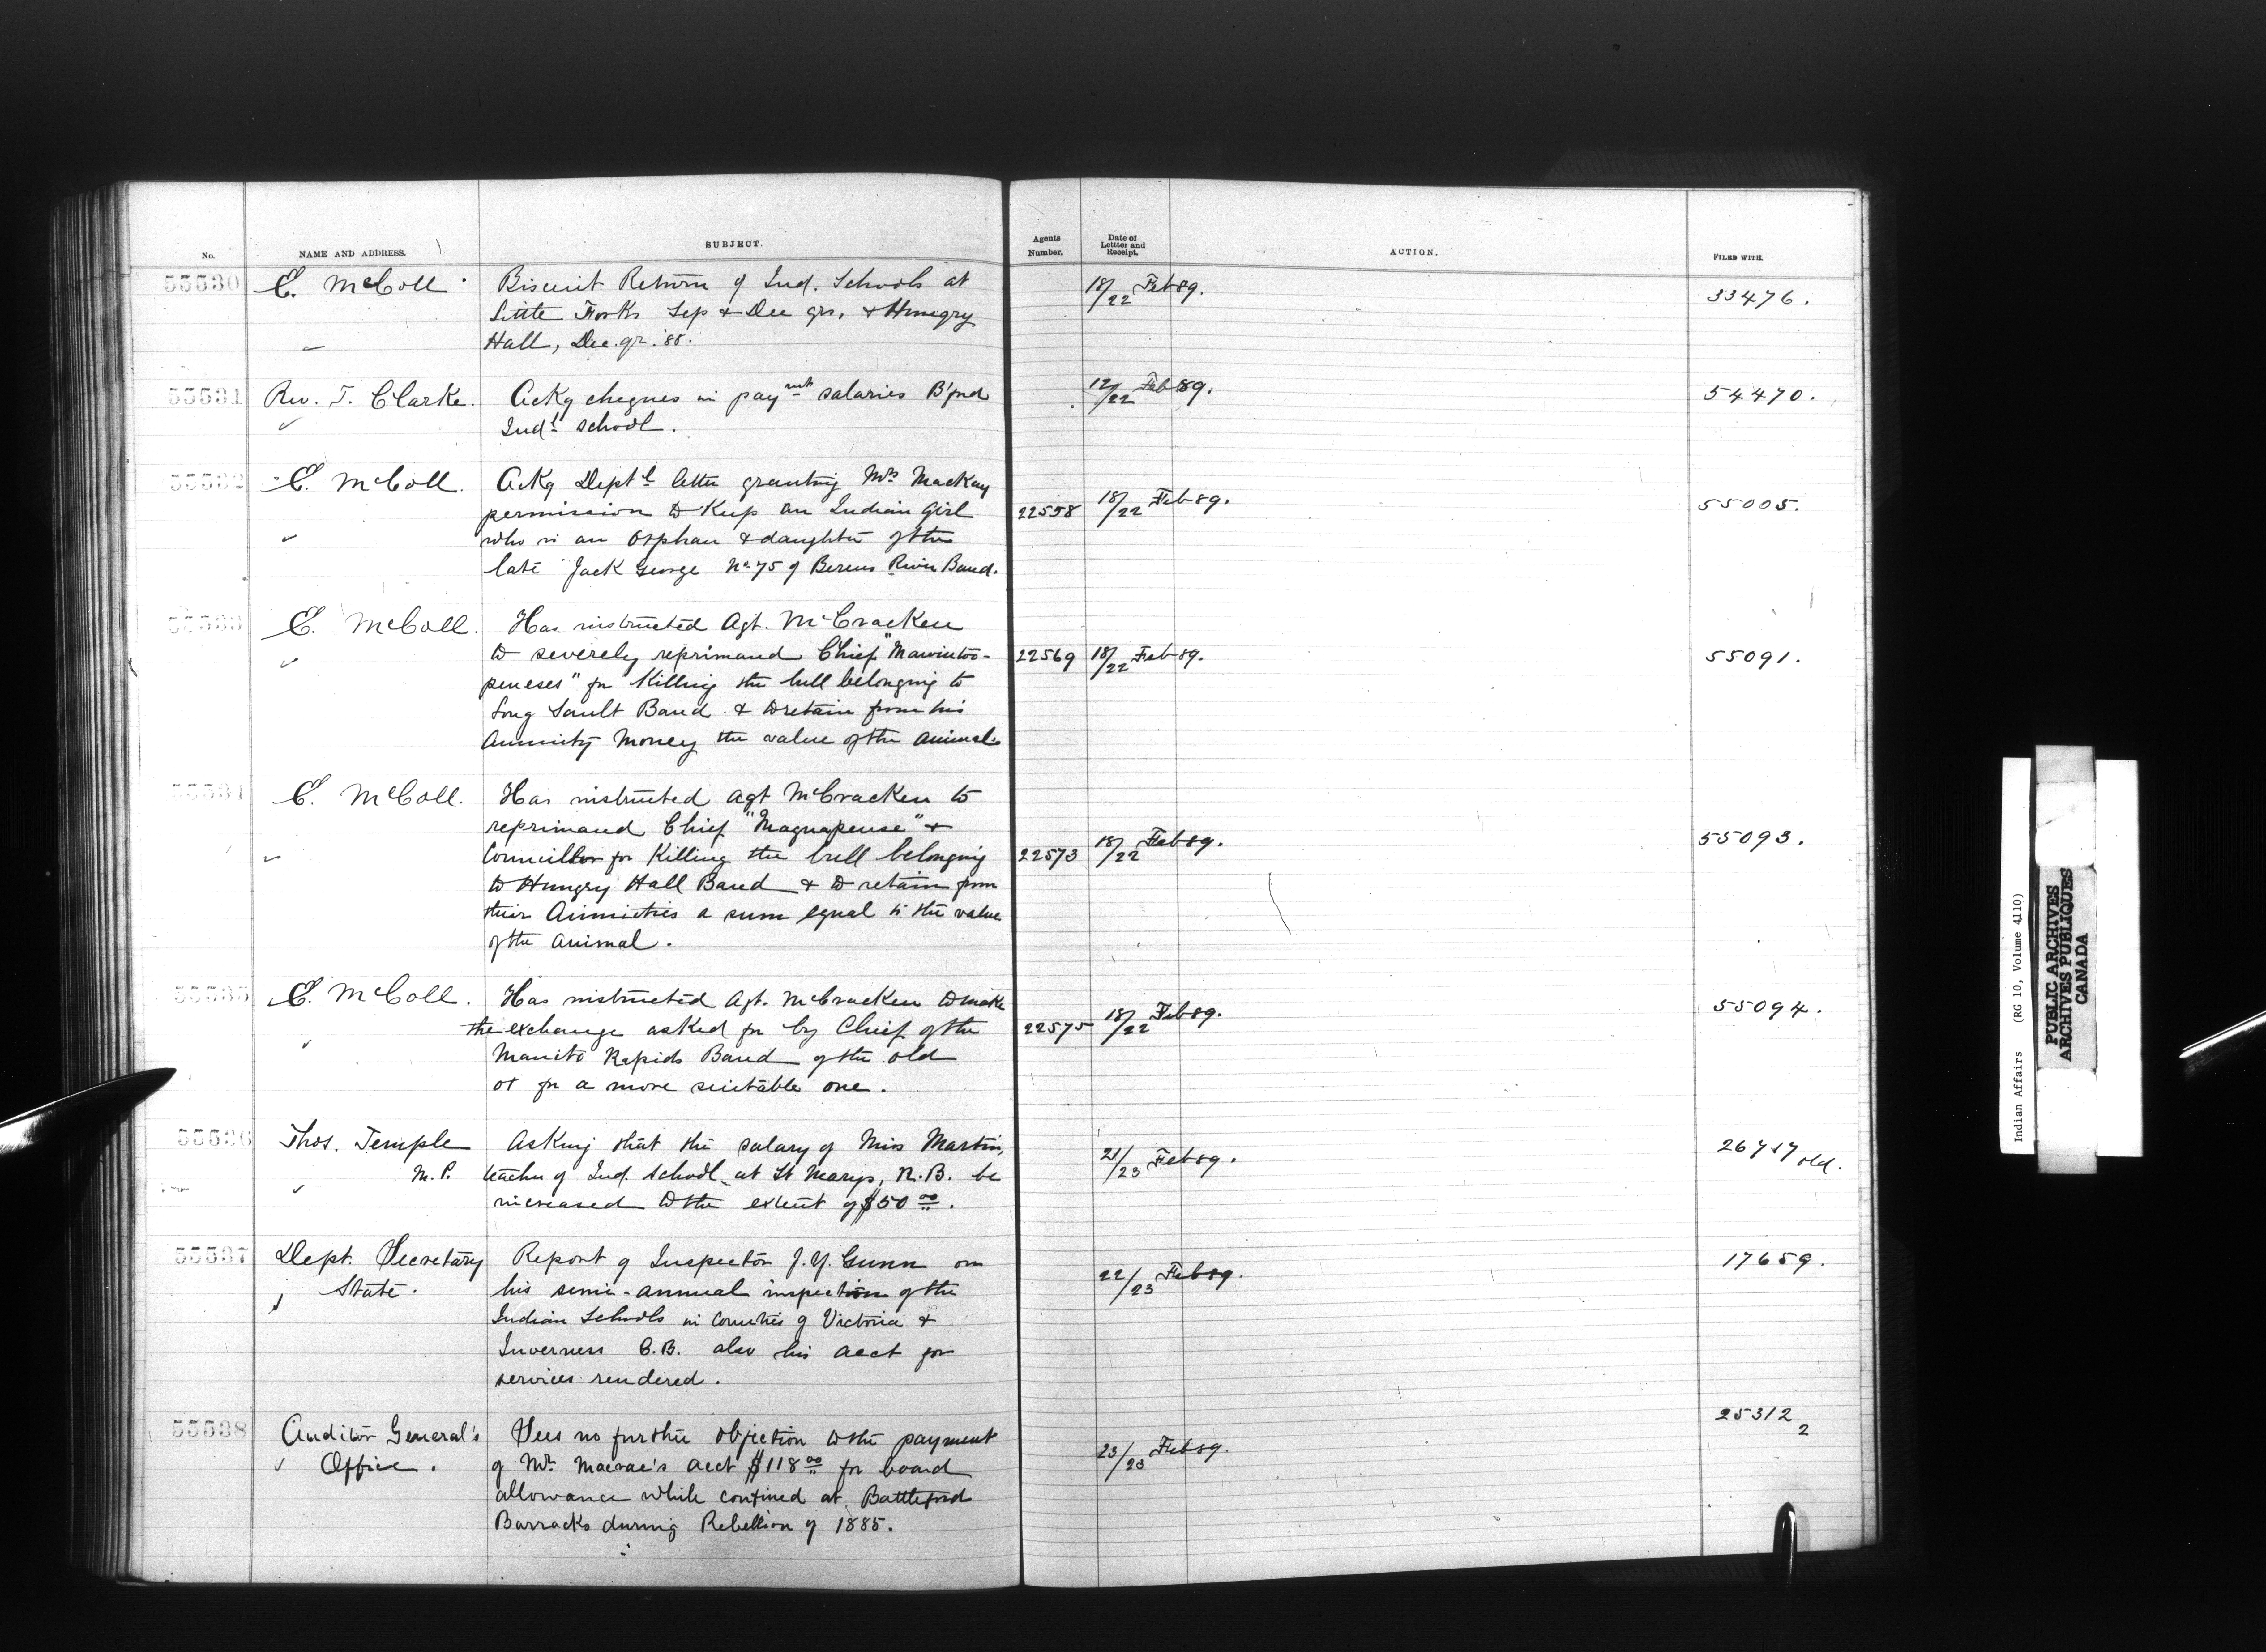 No. NAME AND ADDRESS. SUBJECT. Agents Number. Date of Letter and Receipt. ACTION. FILED WITH.
55530 E. McColl Biscuit Return of Ind. Schools at 18/22 Feb 89. 33476.
Little Forks Sep & Dec qrs. & Hungry
Hall, Dec. qr. '88.
55531 Rev. T. Clarke. Ackg cheques in paymt salaries B'ford 12/22 Feb 89. 54470.
Indl school.
55532 E. McColl. Ackg Deptl letter granting Mrs Mackay
permission to keep an Indian Girl 22558 18/22 Feb 89. 55005.
who is an Orphan & daughter of the
late Jack George No 75 of Berens River Band.
55533 E. McColl. Has instructed Agt. McCracken
to severely reprimand Chief "Mawintoo- 22569 18/22 Feb 89. 55091.
peneses" for Killing the bull belonging to
Long Sault Band & to retain from his
Annuity Money the value of the animal.
55534 E. McColl. Has instructed Agt McCracken to
reprimand Chief "Magnapense" &
Councillor for Killing the bull belonging 22573 18/22 Feb 89. 55093.
to Hungry Hall Band & to retain from
their Annuities a sum equal to the value
of the animal.
55535 E. McColl. Has instructed Agt. McCracken to make 55094.
the exchange asked for by Chief of the 22575 18/22 Feb 89.
Manito Rapids Band of the old
ox for a more suitable one.
55536 Thos. Temple Asking that the salary of Miss Martin, 21/23 Feb 89. 26717 old.
M.P. teacher of Ind. school at St Marys, N.B. be
increased to the extent of $50 00.
55537 Dept. Secretary Report of Inspector J. Y. Gunn on 22/23 Feb 89. 17659.
State. his semi-annual inspection of the
Indian Schools in Counties of Victoria &
Inverness C.B. also his acct for
services rendered.
55538 Auditor General's Sees no further objection to the payment 23/23 Feb 89. 25312 2
Office. of Mr. Macrae's acct $118 00 for board
allowance while confined at Battleford
Barracks during Rebellion of 1885.
Indian Affairs (RG 10, Volume 4110)
PUBLIC ARCHIVES
ARCHIVES PUBLIQUES
CANADA